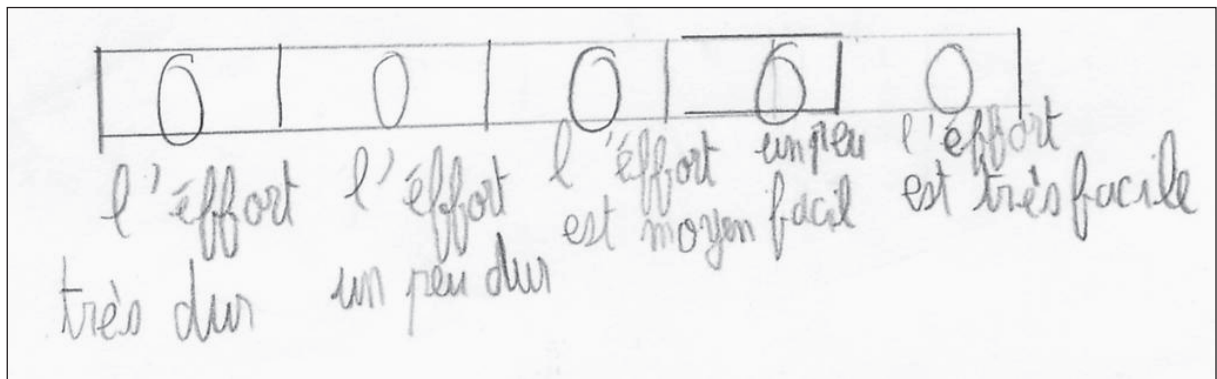 0 0 0 0 0
l'éffort très dur
l'éffort un peu dur
l'éffort est moyen
un peu facil
l'éffort est très facile